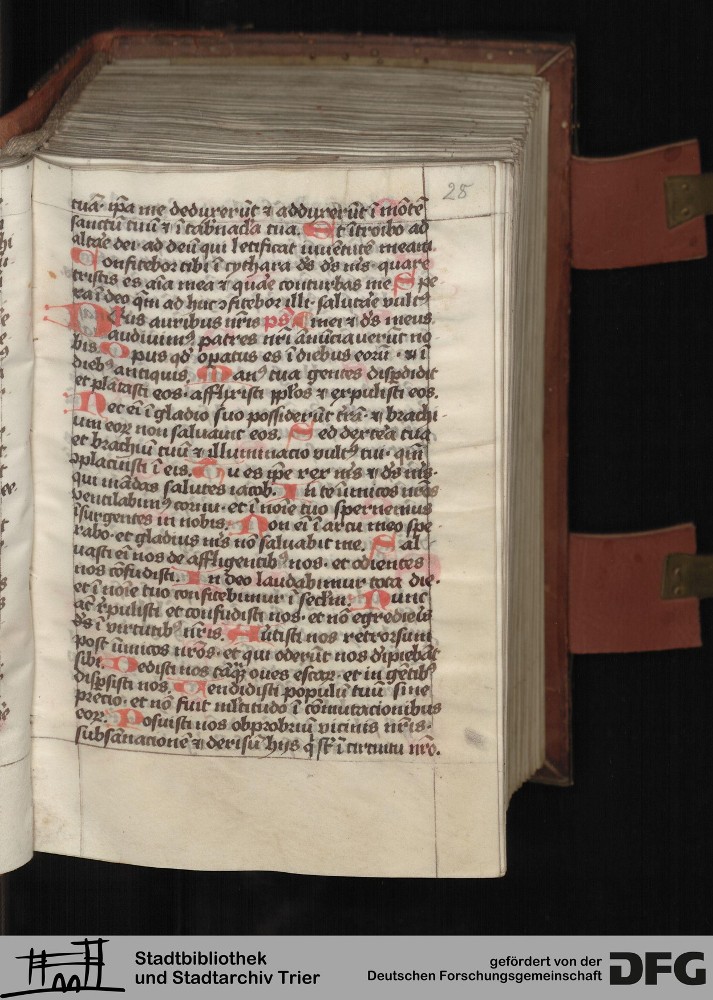 25
tuā· ip̄a me deduxerūt ⁊ adduxerūt ī mōtē
sanctū tuū ⁊ ī tab̄nacl'a tua. Et ītroibo ad
altāe dei ad deū qui letificat iuuētutē meam.
Confitebor tibi ī cythara d̄s d̄s m̄s· quare
tristis es aīa mea ⁊ quāe conturbas me Spe
ra ī deo qm̄ ad huc ꝯfitebor illi· salutāe vultꝰ
Deus auribus nr̄is ps̄ mei ⁊ d̄s meus.
audiuimꝰ patres nr̄i anūciauerūt no
bis. Opus qd' opatus es ī diebus eorū· ⁊ ī
diebꝰ antiquis. Manꝰ tua gentes disp̄didit
et plātasti eos· afflixisti pp̄los ⁊ expulisti eos.
Nec eī ī gladio suo possiderūt t̄rā· ⁊ brachi
um eoꝝ non saluauit eos. Sed dextēa tua
et brachiū tuū ⁊ illuminacio vultꝰ tui· qm̄
ꝯplacuisti ī eis. Tu es ip̄e rex m̄s ⁊ d̄s m̄s·
qui mādas salutes iacob. In te īimicos nr̄os
ventilabimꝰ cornu· et ī noīe tuo spernemus
īsurgentes in nobis. Non eī ī arcu meo spe
rabo· et gladius m̄s nō saluabit me. Sal
uasti eī nos de affligentibꝰ nos· et odientes
nos cōfudisti. In deo laudabimur tota die·
et ī noīe tuo confitebimur ī sec̄lm. Nunc
at̄ r̄pulisti et confudisti nos· et nō egrediēis
d̄s ī virtutibꝰ nr̄is. Autisti nos retrorsum
post īimicos nr̄os· et qui oderūt nos dīpiebāt
sibi. Dedisti nos tāq̄ȝ oues escaꝝ· et in gētibꝰ
disp̄sisti nos. Vendidisti populū tuū sine
precio· et nō fuit mltitudo ī cōmutacionibus
eoꝝ. Posuisti nos obprobriū vicinis nr̄is·
subsānacionē ⁊ derisū hijs q̄ st̄ ī circuitu nr̄o.
Stadtbibliothek
und Stadtarchiv Trier
gefördert von der
Deutschen Forschungsgemeinschaft
DFG